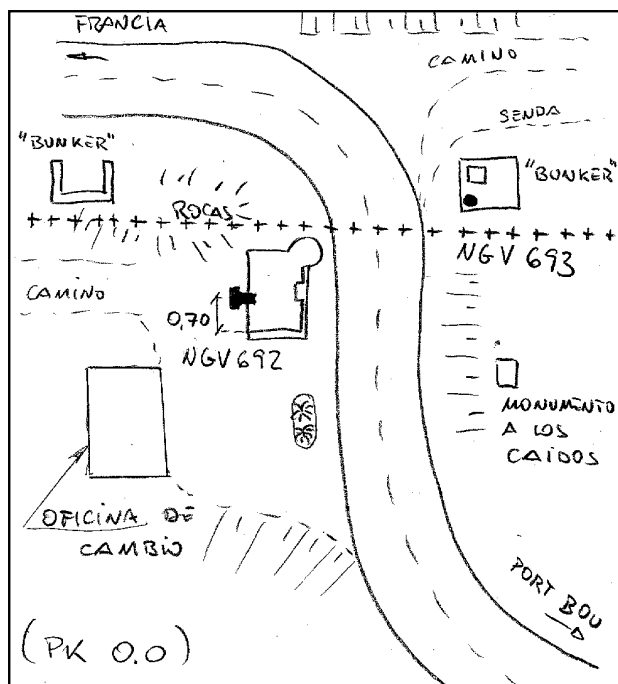 FRANCIA
CAMINO
SENDA
"BUNKER"
"BUNKER"
ROCAS
NGV 693
CAMINO
0,70
NGV 692
MONUMENTO
A LOS
CAIDOS
OFICINA DE
CAMBIO
PORT BOU
(PK 0.0)